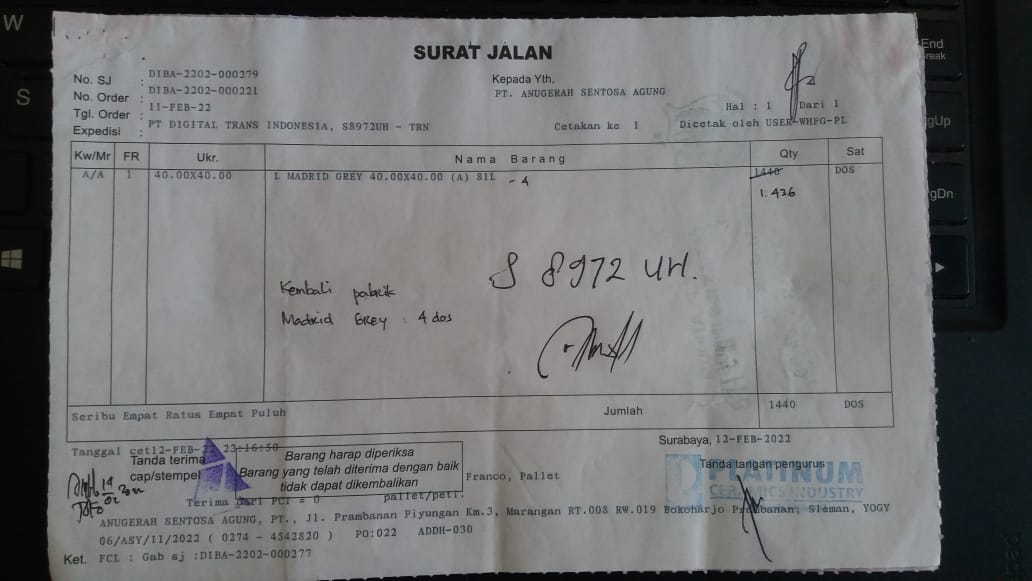 SURAT JALAN
No. SJ : DIBA-2202-000279
No. Order : DIBA-2202-000221
Tgl. Order : 11-FEB-22
Expedisi : PT DIGITAL TRANS INDONESIA, S8972UH - TRN
Kepada Yth,
PT. ANUGERAH SENTOSA AGUNG
Hal : 1 Dari 1
Cetakan ke 1 Dicetak oleh USER-WHFG-PL
Kw/Mr FR Ukr. Nama Barang Qty Sat
A/A 1 40.00X40.00 L MADRID GREY 40.00X40.00 (A) 81L - 4 1440 DOS
1.436
S 8972 UH.
Kembali pabrik
Madrid GREY : 4 dos
Seribu Empat Ratus Empat Puluh Jumlah 1440 DOS
Tanggal cet12-FEB-22 23:16:50
Surabaya, 12-FEB-2022
Tanda terima
cap/stempel
Barang harap diperiksa
Barang yang telah diterima dengan baik
tidak dapat dikembalikan
Franco, Pallet
Tanda tangan pengurus
PLATINUM
CERAMICS INDUSTRY
Terima dari PCI = 0 pallet/peti.
ANUGERAH SENTOSA AGUNG, PT., Jl. Prambanan Piyungan Km.3, Marangan RT.008 RW.019 Bokoharjo Prambanan, Sleman, YOGY
06/ASY/II/2022 ( 0274 - 4542820 ) PO:022 ADDH-030
Ket. FCL : Gab sj :DIBA-2202-000277
W
S
End
PgUp
PgDn